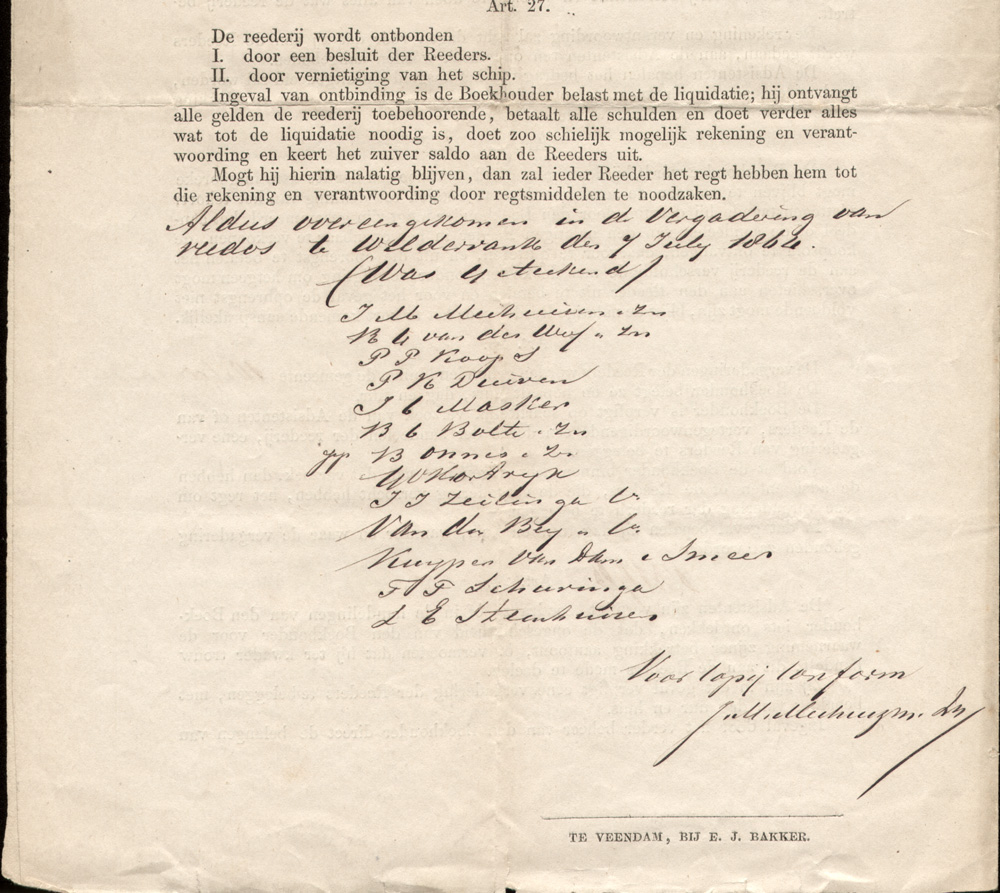 Art. 27.
De reederij wordt ontbonden
I. door een besluit der Reeders.
II. door vernietiging van het schip.
Ingeval van ontbinding is de Boekhouder belast met de liquidatie; hij ontvangt
alle gelden de reederij toebehoorende, betaalt alle schulden en doet verder alles
wat tot de liquidatie noodig is, doet zoo schielijk mogelijk rekening en verant-
woording en keert het zuiver saldo aan de Reeders uit.
Mogt hij hierin nalatig blijven, dan zal ieder Reeder het regt hebben hem tot
die rekening en verantwoording door regtsmiddelen te noodzaken.
Aldus overeengekomen in de Vergadering van
reeders te Wildervank den 7 July 1864.
(Was Geteekend)
J M Meihuizen & Zn
B G van der Werf & Zn
P P Koops
P K Duiven
J C Masker
B C Bolt & Zn
pp B Onnes & Zn
J J Zeilinga Co
Van der Bey & Co
Kuyper Van Dam & Smeer
F F Scheuringa
L E Steenhuisen
Voor Copij Conform
J. M. Meihuizen Zn
TE VEENDAM, BIJ E. J. BAKKER.